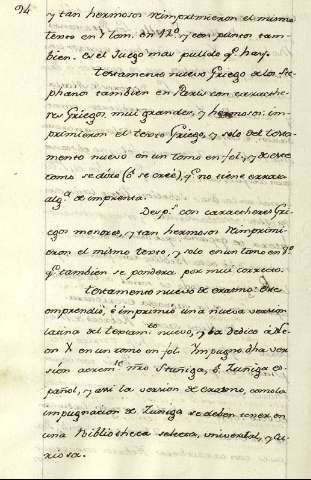 94
y tan hermosos reimprimieron el mismo
texto en 8 tom. en 12º. y con puntos tam-
bien. Es el Juego mas pulido qe. hay.
Testamento nuevo Griego de los Ste-
phanos tambien en Paris con caracte-
res Griegos, mui grandes, y hermosos: im-
primieron el texto Griego, y solo del testa-
mento nuevo en un tomo en fol., y de este
tomo se dice (ò se creè), qe. no tiene errata
alga. de imprenta.
Desps. con caracteres Gri-
egos menores, y tan hermosos reimprimi-
eron el mismo texto, y solo en un tomo en
qe. tambien se pondera por mui correcto.
Testamento nuevo de Erasmo: Este
emprendiò, è imprimiò una nueva version
latina del testamto. nuevo, y la dedicò à Le-
on X en un tomo en fol. Ympugnò dha ver-
sion acremte. nro Stuñiga, ò Zuñiga es-
pañol, y asi la version de Erasmo, como la
impugnacion de Zuñiga se deben tener en
una Bibliotheca selecta, universal, y cu-
riosa.